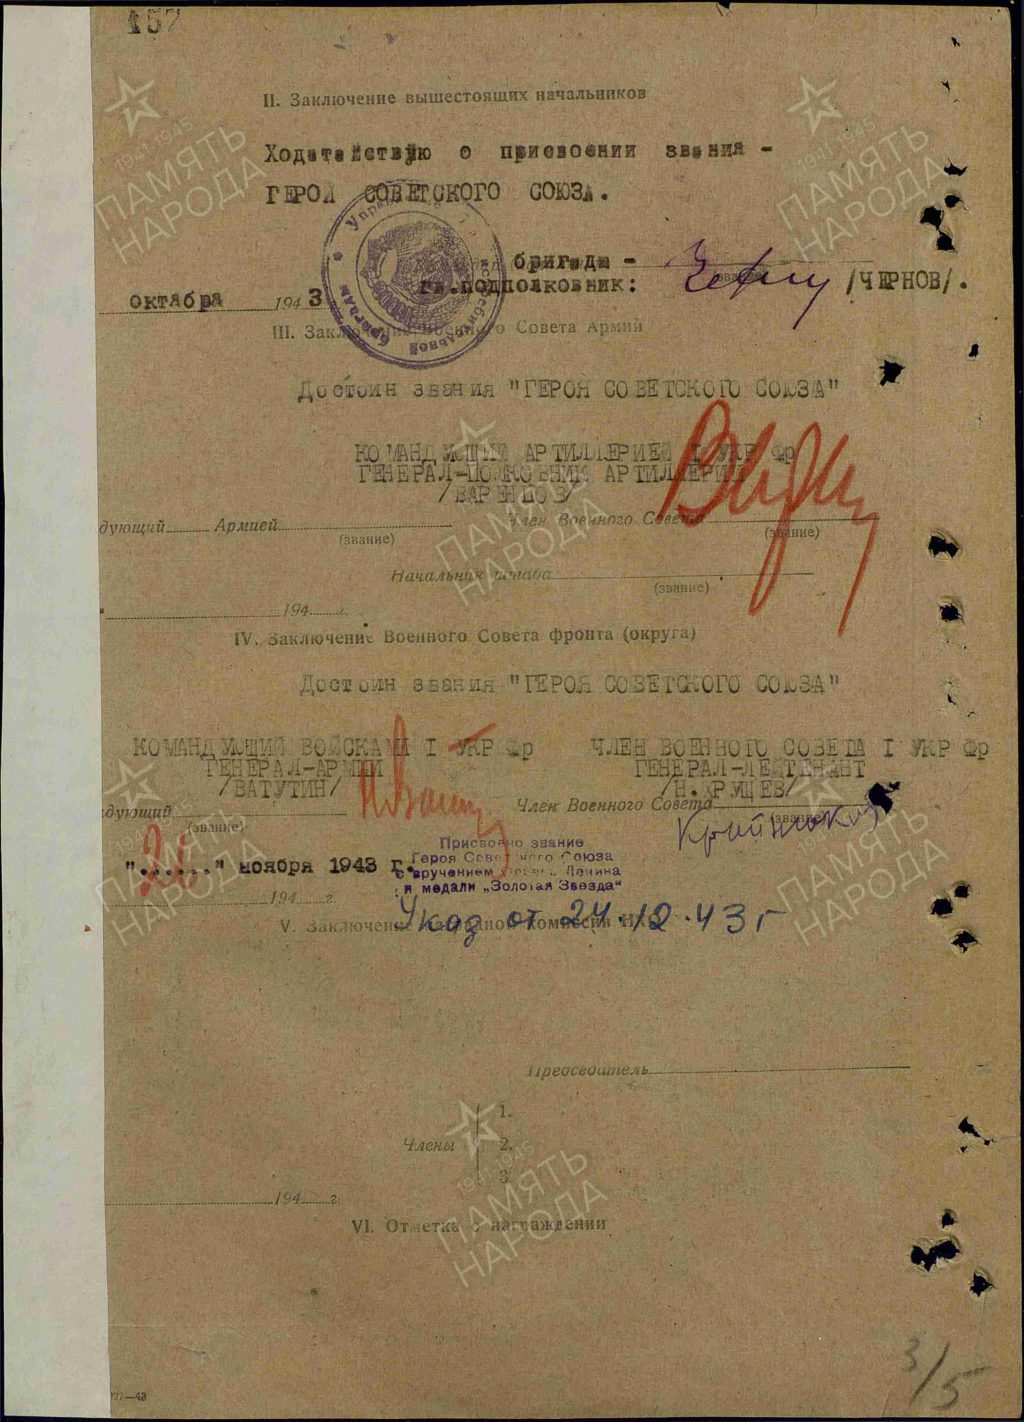 157
II. Заключение вышестоящих начальников
Ходатайствую о присвоении звания -
ГЕРОЯ СОВЕТСКОГО СОЮЗА.
бригады -
гв.подполковник: /ЧЕРНОВ/.
октября 1943
III. Заключение Военного Совета Армии
Достоин звания "ГЕРОЯ СОВЕТСКОГО СОЮЗА"
КОМАНДУЮЩИЙ АРТИЛЛЕРИЕЙ I УКР фр
ГЕНЕРАЛ-ПОЛКОВНИК АРТИЛЛЕРИИ
/ВАРЕНЦОВ/
дующий Армией Член Военного Совета
(звание) (звание)
Начальник штаба
(звание)
194 г.
IV. Заключение Военного Совета фронта (округа)
Достоин звания "ГЕРОЯ СОВЕТСКОГО СОЮЗА"
КОМАНДУЮЩИЙ ВОЙСКАМИ I УКР фр ЧЛЕН ВОЕННОГО СОВЕТА I УКР фр
ГЕНЕРАЛ-АРМИИ ГЕНЕРАЛ-ЛЕЙТЕНАНТ
/ВАТУТИН/ /Н.ХРУЩЕВ/
дующий Член Военного Совета
(звание) (звание)
Крайнюков
"......" ноября 1943 г.
Присвоено звание
Героя Советского Союза
с вручением Ордена Ленина
и медали „Золотая Звезда“
194 г.
Указ от 24.12.43 г
V. Заключение Наградной Комиссии НКО
Председатель
1.
Члены 2.
3.
194 г.
VI. Отметка о награждении
3/5
ПАМЯТЬ НАРОДА
1941-1945